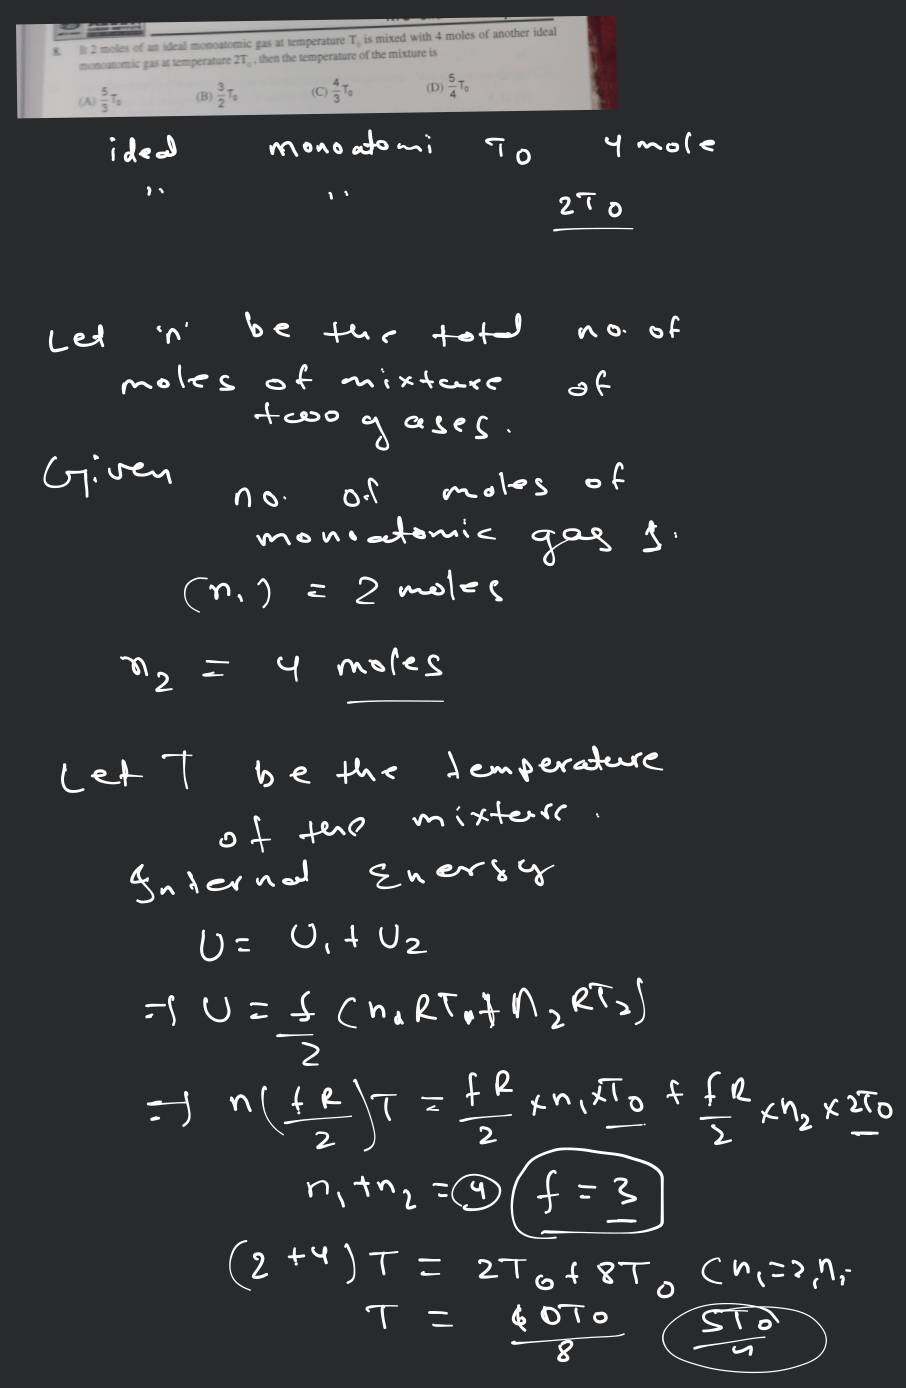 8. If 2 moles of an ideal monoatomic gas at temperature T₀ is mixed with 4 moles of another ideal
monoatomic gas at temperature 2T₀, then the temperature of the mixture is
(A) 5/3 T₀ (B) 3/2 T₀ (C) 4/3 T₀ (D) 5/4 T₀
ideal monoatomi T0 4 mole
,, ,,
2T0
Let 'n' be the total no. of
moles of mixture of
two gases.
Given
no. of moles of
monoatomic gas 1.
(n₁) = 2 moles
n₂ = 4 moles
Let T be the temperature
of the mixture.
Internal Energy
U = U₁ + U₂
⇒ U = f/2 (n₁RT₀ + n₂RT₂)
⇒ n(fR/2)T = fR/2 × n₁ × T0 + fR/2 × n₂ × 2T0
n₁ + n₂ = 4 f = 3
(2+4)T = 2T0 + 8T0 (n₁=2, n₂
T = 10T0/8 5T0/4